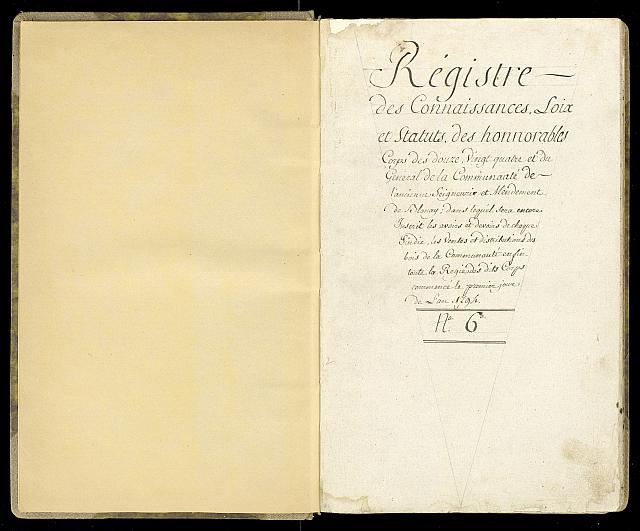 Régistre
des Connaissances, Loix
et Statuts, des honnorables
Corps des douze, Vingt quatre et du
Général de la Communauté de
l'ancienne Seigneurie et Mendement
de Blonay; dans lequel sera encore
Inscrit les avoirs et devoirs de chaque
Sindic, les Ventes et distributions des
bois de la Communauté enfin
toute la Regie des dits Corps
commencé le premier jour
de L'an
N.º 6